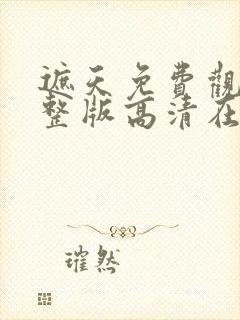 遮天免費觀
整版高清在
璀然